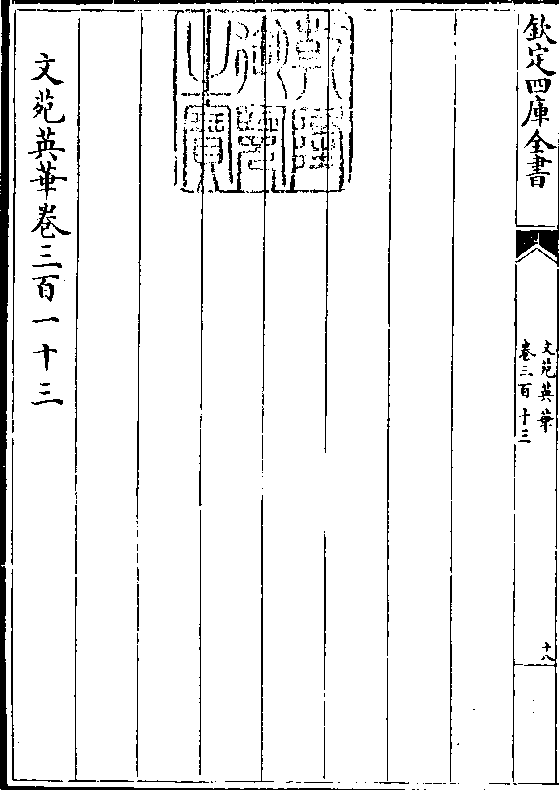 欽定四庫全書
文苑英華
卷三百十三
十八
乾隆御覽之寶
文苑英華卷三百一十三